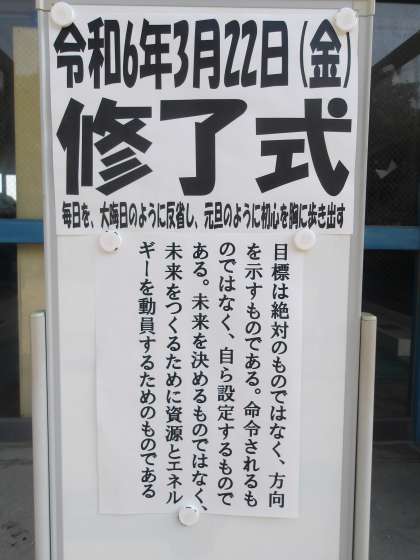 令和6年3月22日(金)
修了式
毎日を、大晦日のように反省し、元旦のように初心を胸に歩き出す
目標は絶対のものではなく、方向
を示すものである。命令されるも
のではなく、自ら設定するもので
ある。未来を決めるものではなく、
未来をつくるために資源とエネル
ギーを動員するためのものである